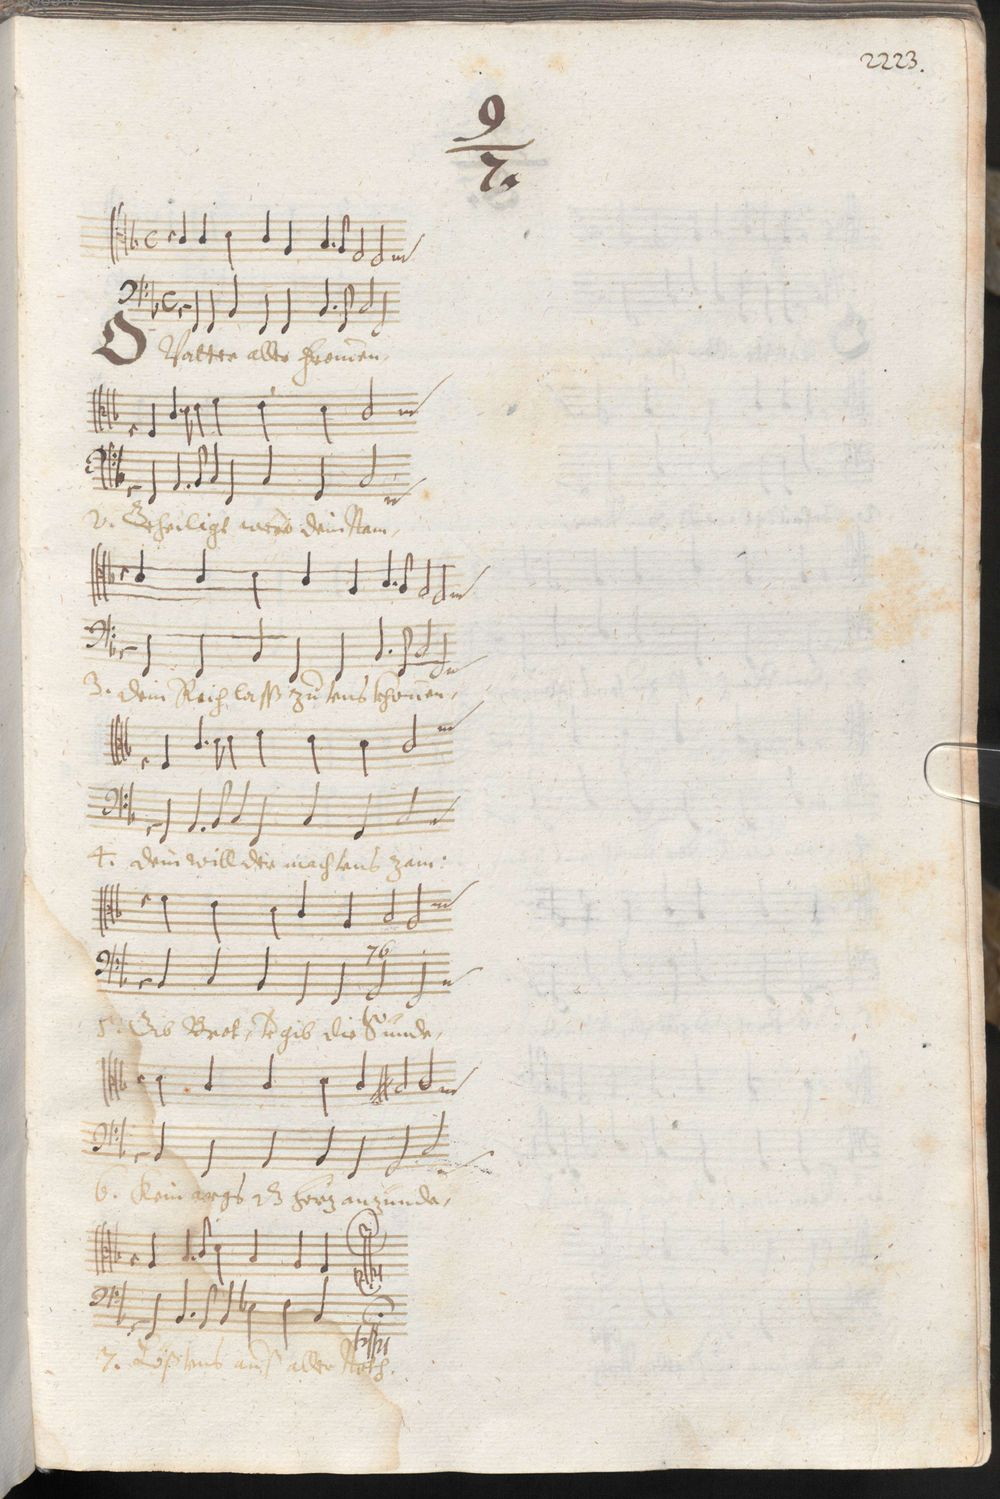 2223.
9
7.
O Vatter aller fromen,
2. Geheiligt werd dein Nam,
3. dein Reich lass zu uns khomen,
4. dein will der mach uns zam:
5. Gib Brot, vergib die Sünde,
76
6. Kein args dz hertz anzünde,
7. Löß uns auß aller Noth.